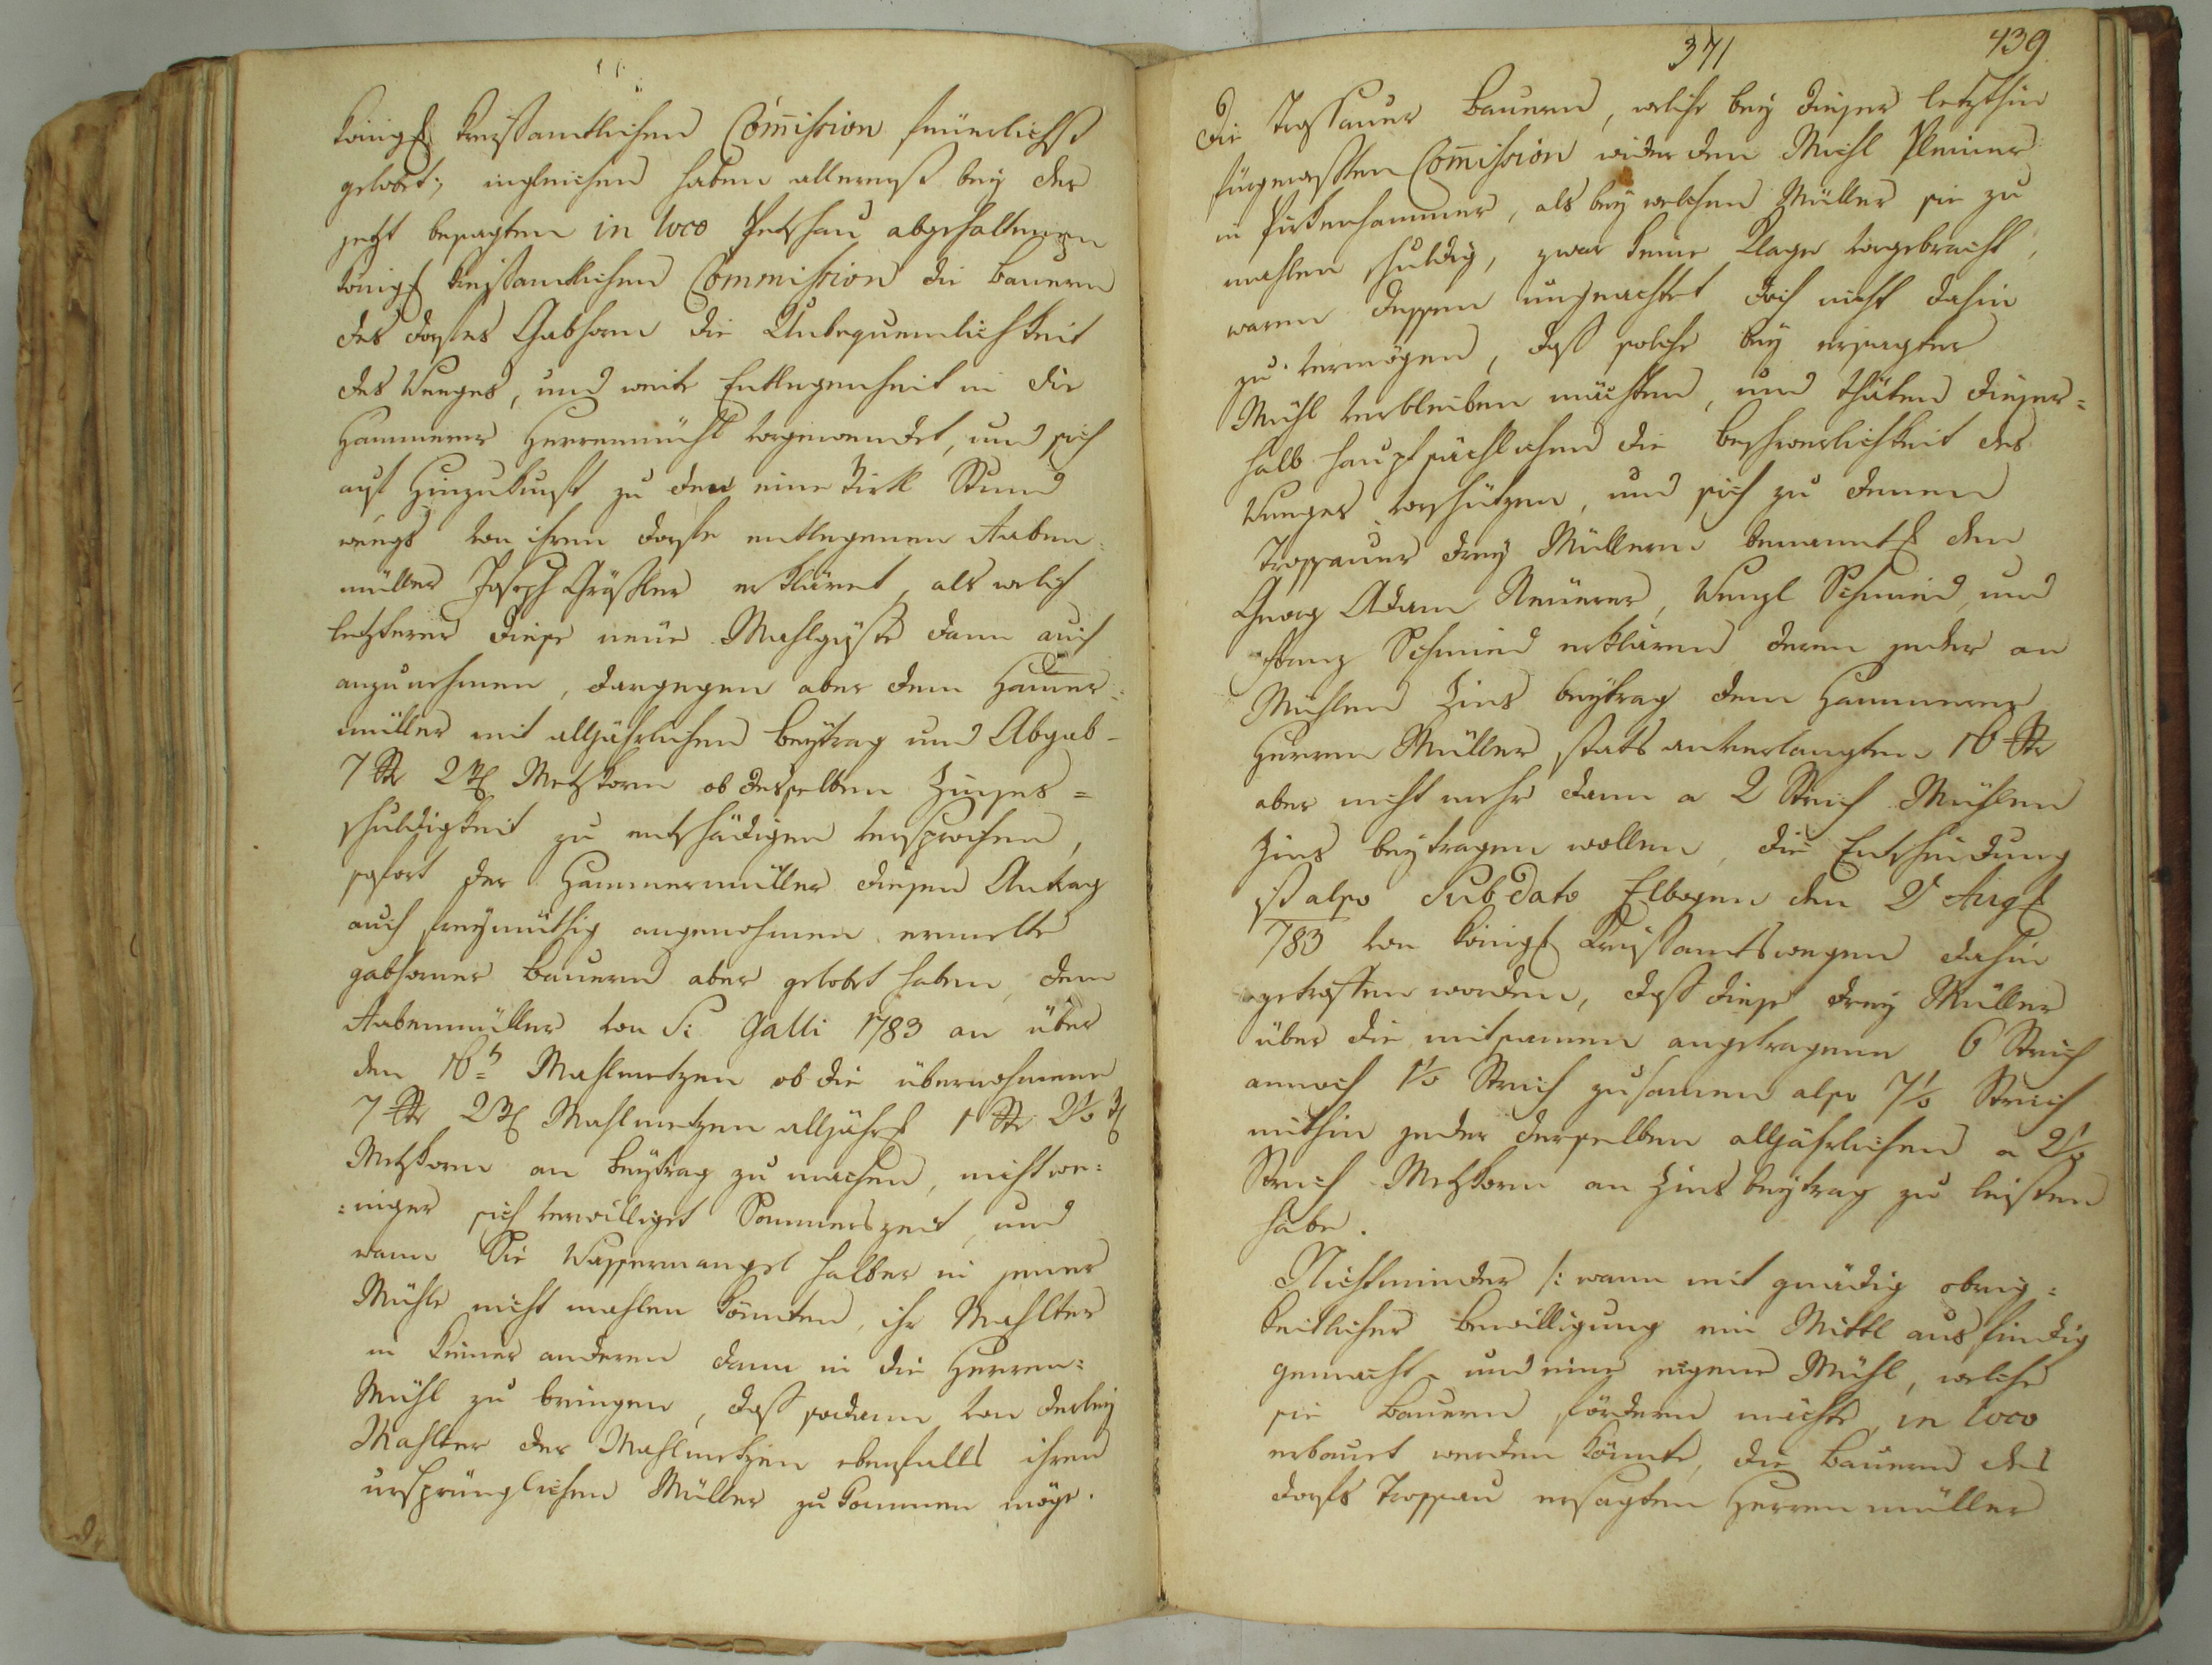 königl Kreißamtlichen Commission feuerlichst
gelobt; ingleichen haben allererst bey der
jetzt besagten in loco Petschau abgehaltenen
königl Kreißamtlichen Commission die Bauern
des Dorfes Gabhorn die Unbequemlichkeit
des Weeges, und weite Entlegenheit in die
Hammerer Herrenmühl vorgewendet, und sich
auf Hinzukunft zu der eine Virtl Stund
weegs von ihrem Dorfe entlegenen Aaben-
müller Joseph erkläret, als welch
letzterer diese neue Mahlgäste dann auch
anzunehmen, dargegen aber dem Hammer-
müller mit alljährlichen Beytrag und Abgab
7 Str 2 Metzkorn ob desselben Zinses=
schuldigkeit zu entschädigen versprochen,
sofort der Hammermüller diesen Antrag
auch freymüthig angenohmen ermelte
gabhorner Bauern aber gelobt haben, dem
Aabenmüller von St: Galli 1783 an über
den 16t Mahlmetzen ob die übernohmene
7 Str 2 Mahlmetzen alljährl 1 Str 2½
Metzkorn an Beytrag zu machen, nicht we=
=niger sich verwilliget Sommerszeit, und
wann Sie Wassermangel halber in jener
Mühle nicht mahlen könnten, ihr Mahlter
in keiner anderen dann in die Herren=
Mühl zu bringen, daß sodann von derley
Mahlter der Mahlmetzen ebenfalls ihren
ursprünglichen Müller zukommen möge.
371 439
Die Trossauer Bauern, welche bey dieser letzthin
fürgewesten Commission wider den Michl Pleiner
in Pirkenhammer, als bey welchem Müller sie zu
mahlen schuldig, zwar keine Klage vorgebracht,
waren dessen ungeachtet doch nicht dahin
zu vermögen, daß solche bey ersagter
Mühl verbleiben möchten, und thäten dieser=
halb hauptsächlichen die Beschwerlichkeit des
Weeges vorschützen, und sich zu denen
Trossauer drey Müllern benanntl den
Georg Adam Neuerer, Wenzl Schmied, und
Franz Schmied erklären deren jeder an
Mühlen Zins Beytrag dem Hammerer
Herren Müller statt anverlangten 16 Str
aber nicht mehr dann a 2 Strich Mühlen
Zins beytragen wollen, die Entscheidung
ist also sub dato Elbogen den 2t Augl
783 von königl Kreißamtswegen dahin
getroffen worden, daß diese drey Müller
über die mitsamen angetragene 6 Strich
annoch 1½ Strich zusamen also 7½ Strich
mithin jeder derselben alljährlichen a 2½
Strich Metzkorn an Zins Beytrag zu leisten
habe.
Nichtminder /: wann mit gnädig obrig=
keitlicher Bewilligung ein Mittl ausfindig
gemacht und eine eigene Mühl, welche
sie Bauern fördern möchte, in loco
erbauet werden könnte, die Bauern des
Dorfs Trossau ersagten Herrenmüller